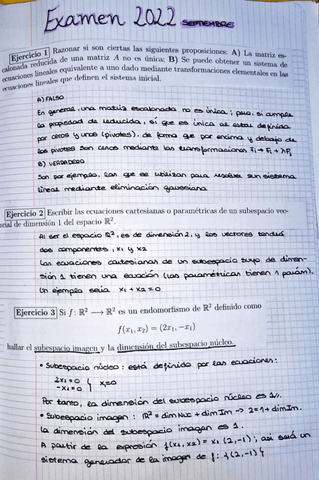 Examen 2022 SEPTIEMBRE
Ejercicio 1 Razonar si son ciertas las siguientes proposiciones: A) La matriz es-
calonada reducida de una matriz A no es única; B) Se puede obtener un sistema de
ecuaciones lineales equivalente a uno dado mediante transformaciones elementales en las
ecuaciones lineales que definen el sistema inicial.
A) FALSO
En general, una matriz escalonada no es única; pero, si cumple
la propiedad de reducida, sí que es única al estar definida
por ceros y unos (pivotes), de forma que por encima y debajo de
los pivotes son ceros mediante las transformaciones Fi → Fi + λFj
B) VERDADERO
Son por ejemplo, las que se utilizan para resolver un sistema
lineal mediante eliminación gaussiana
Ejercicio 2 Escribir las ecuaciones cartesianas o paramétricas de un subespacio vec-
torial de dimensión 1 del espacio ℝ².
Al ser el espacio ℝ², es de dimensión 2, y los vectores tendrá
dos componentes, x₁ y x₂
Las ecuaciones cartesianas de un subespacio suyo de dimen-
sión 1 tienen una ecuación (las paramétricas tienen 1 parám).
Un ejemplo sería x₁ + x₂ = 0
Ejercicio 3 Si f : ℝ² ⟶ ℝ² es un endomorfismo de ℝ² definido como
f(x₁, x₂) = (2x₁, −x₁)
hallar el subespacio imagen y la dimensión del subespacio núcleo.
• Subespacio núcleo: está definido por las ecuaciones:
2x₁ = 0
−x₁ = 0 } x₁=0
Por tanto, la dimensión del subespacio núcleo es 1.
• Subespacio imagen: ℝ² = dim Nuc + dim Im → 2 = 1 + dim Im.
La dimensión del subespacio imagen es 1.
A partir de la expresión f(x₁, x₂) = x₁ (2, −1); así será un
sistema generador de la imagen de f: {(2, −1)}